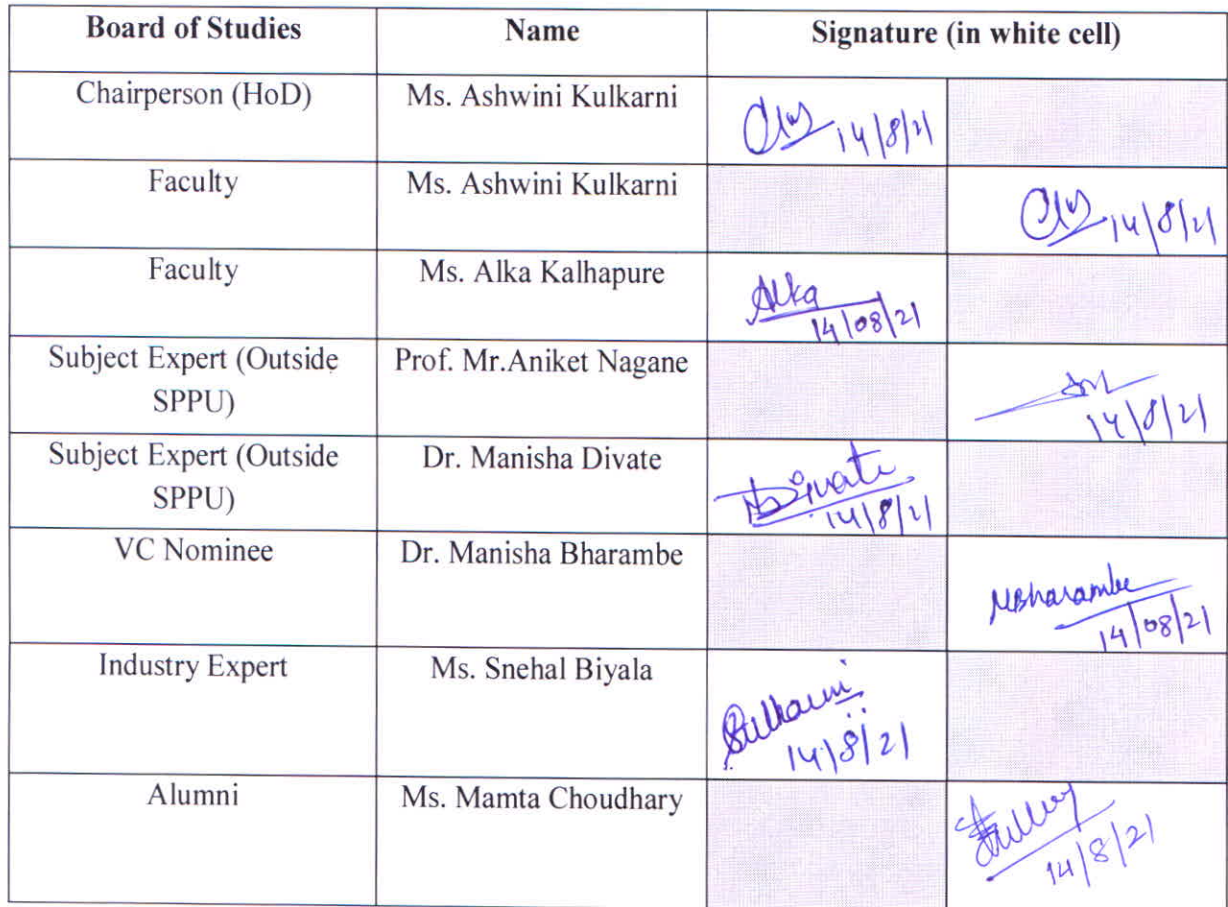 Board of Studies Name Signature (in white cell)
Chairperson (HoD) Ms. Ashwini Kulkarni
14/8/21
Faculty Ms. Ashwini Kulkarni
14/8/21
Faculty Ms. Alka Kalhapure Alka
14/08/21
Subject Expert (Outside Prof. Mr.Aniket Nagane
SPPU)
14/8/21
Subject Expert (Outside Dr. Manisha Divate Divate
SPPU)
14/8/21
VC Nominee Dr. Manisha Bharambe
MBharambe
14/08/21
Industry Expert Ms. Snehal Biyala
14/8/21
Alumni Ms. Mamta Choudhary
14/8/21